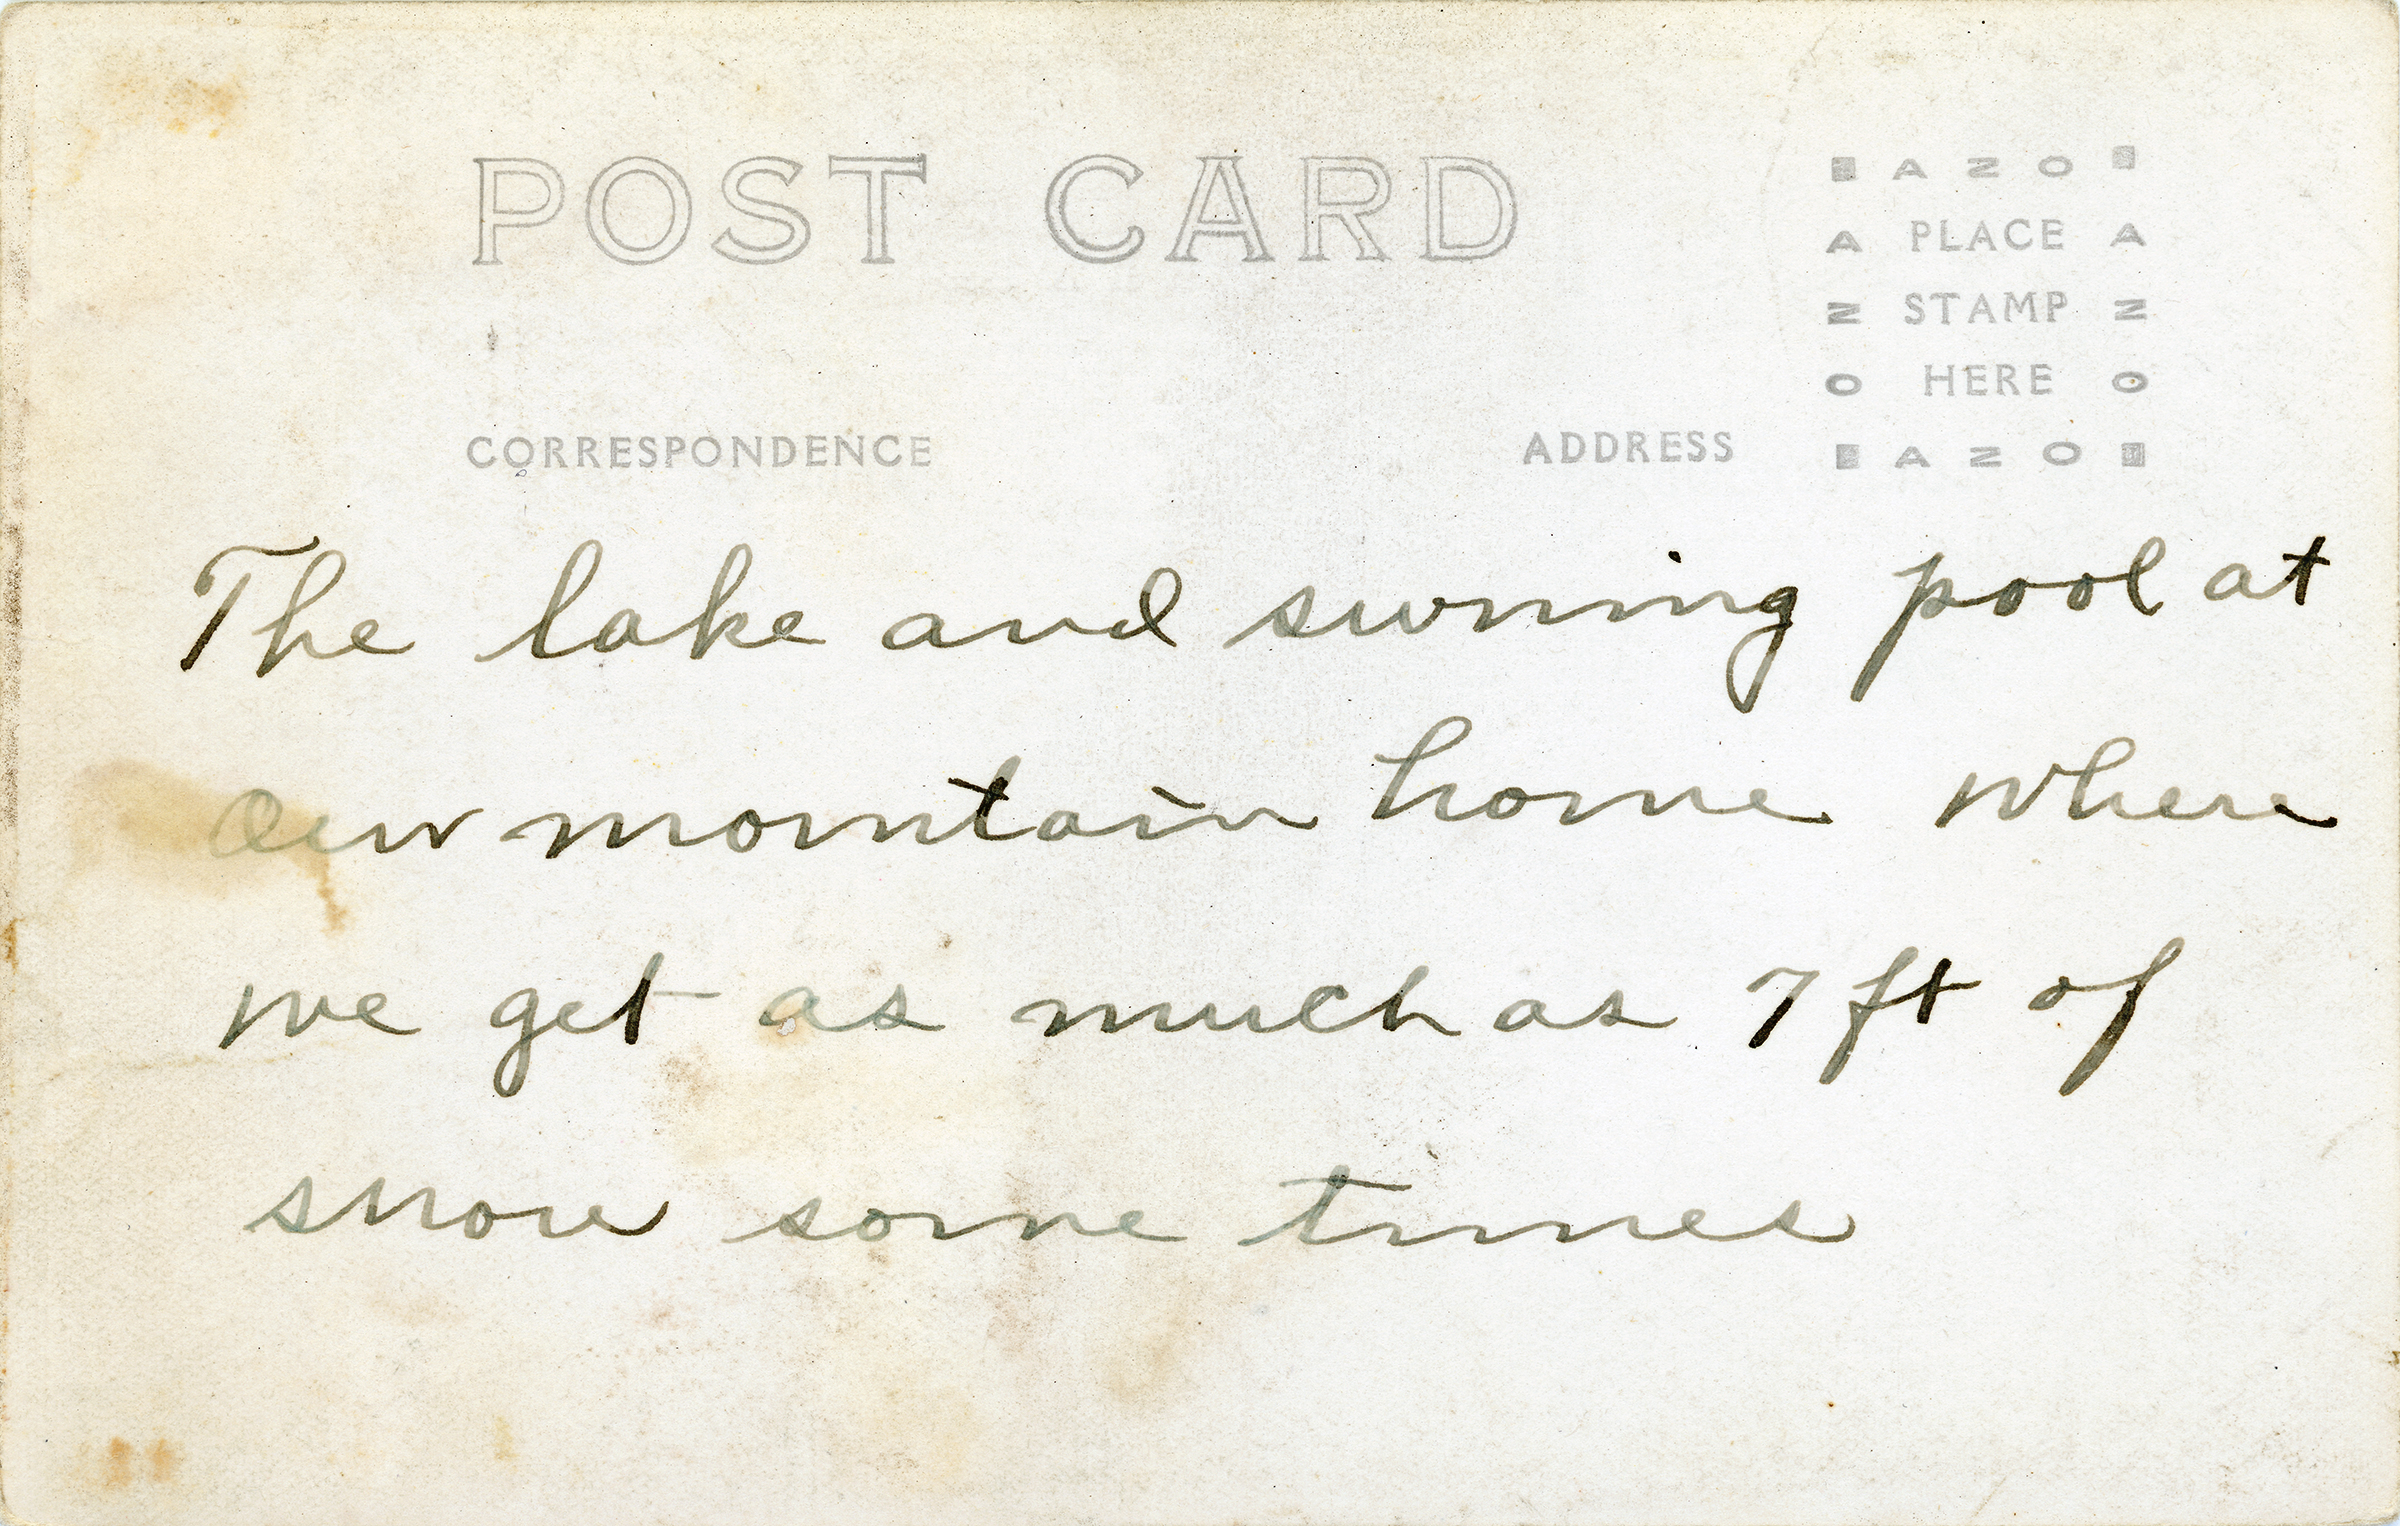 POST CARD
AZO
A PLACE A
Z STAMP Z
O HERE O
CORRESPONDENCE ADDRESS
AZO
The lake and swming pool at
Our mountain home where
we get as much as 7 ft of
snow some times